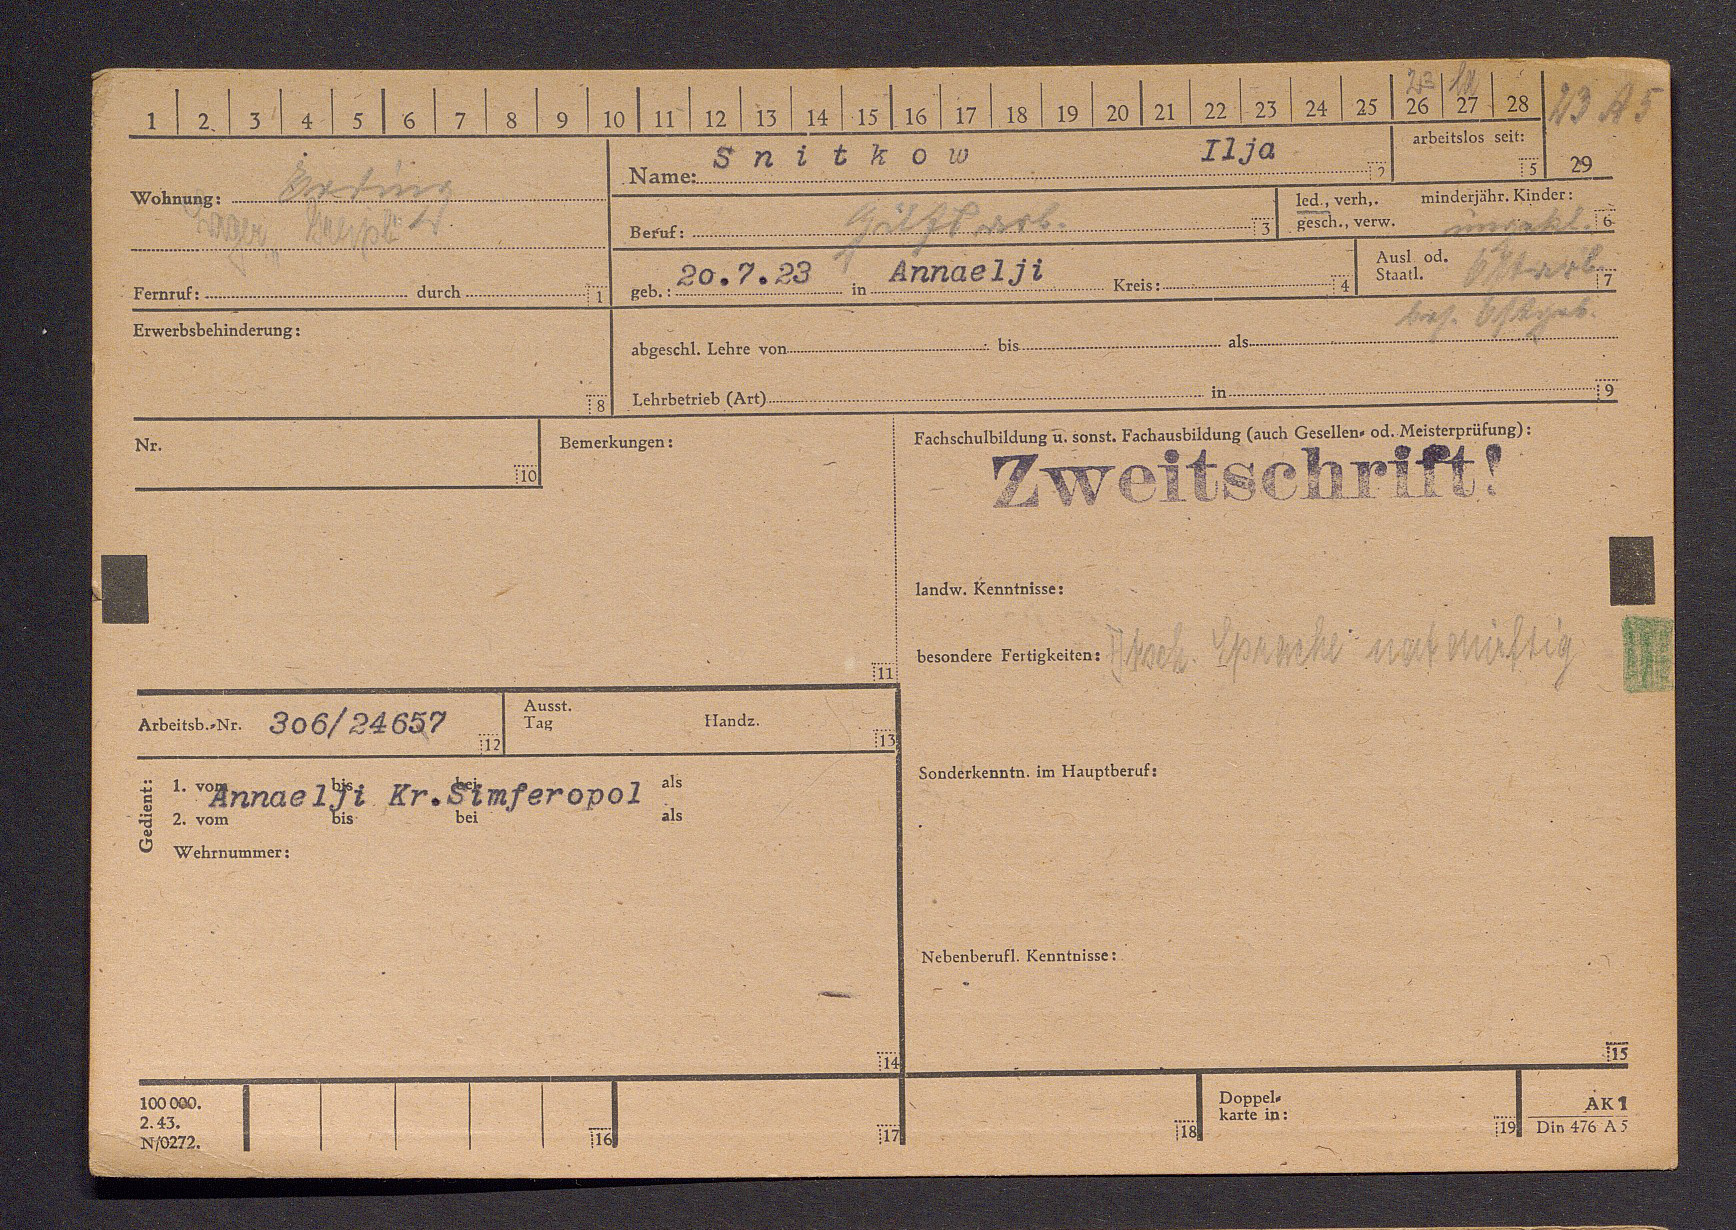 1 2 3 4 5 6 7 8 9 10 11 12 13 14 15 16 17 18 19 20 21 22 23 24 25 26 27 28
23 A 5
Name: Snitkow Ilja 2
arbeitslos seit: 5
29
Wohnung: Erding
Lager
Beruf: Hilfsarb. 3
led., verh,. minderjähr. Kinder:
gesch., verw. 6
geb.: 20.7.23 in Annaelji Kreis: 4
Ausl od.
Staatl. Ostarb. 7
Fernruf: durch 1
Erwerbsbehinderung:
8
abgeschl. Lehre von bis als
Lehrbetrieb (Art) in 9
Nr.
10
Bemerkungen:
11
Fachschulbildung u. sonst. Fachausbildung (auch Gesellen- od. Meisterprüfung):
Zweitschrift!
landw. Kenntnisse:
besondere Fertigkeiten: Dtsch. Sprache notdürftig
Arbeitsb.-Nr. 306/24657 12
Ausst.
Tag Handz. 13
Sonderkenntn. im Hauptberuf:
Gedient:
1. vom bis bei als
Annaelji Kr.Simferopol
2. vom bis bei als
Wehrnummer:
14
Nebenberufl. Kenntnisse:
15
100 000.
2. 43.
N/0272.
16
17
18
Doppel-
karte in: 19
AK 1
Din 476 A 5